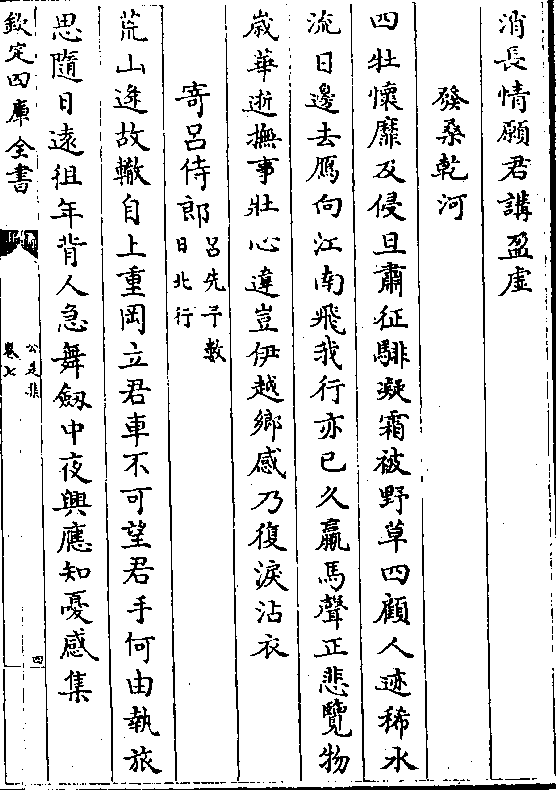 消長情願君講盈虛
發桑乾河
四牡懷靡及侵旦肅征騑凝霜被野草四顧人迹稀水
流日邊去鴈向江南飛我行亦已久羸馬聲正悲覽物
歲華逝撫事壯心違豈伊越鄉感乃復淚沾衣
寄呂侍郎呂先予數
日北行
荒山迷故轍自上重岡立君車不可望君手何由執旅
思隨日遠徂年背人急舞劒中夜興應知憂感集
欽定四庫全書
公是集
卷七
四